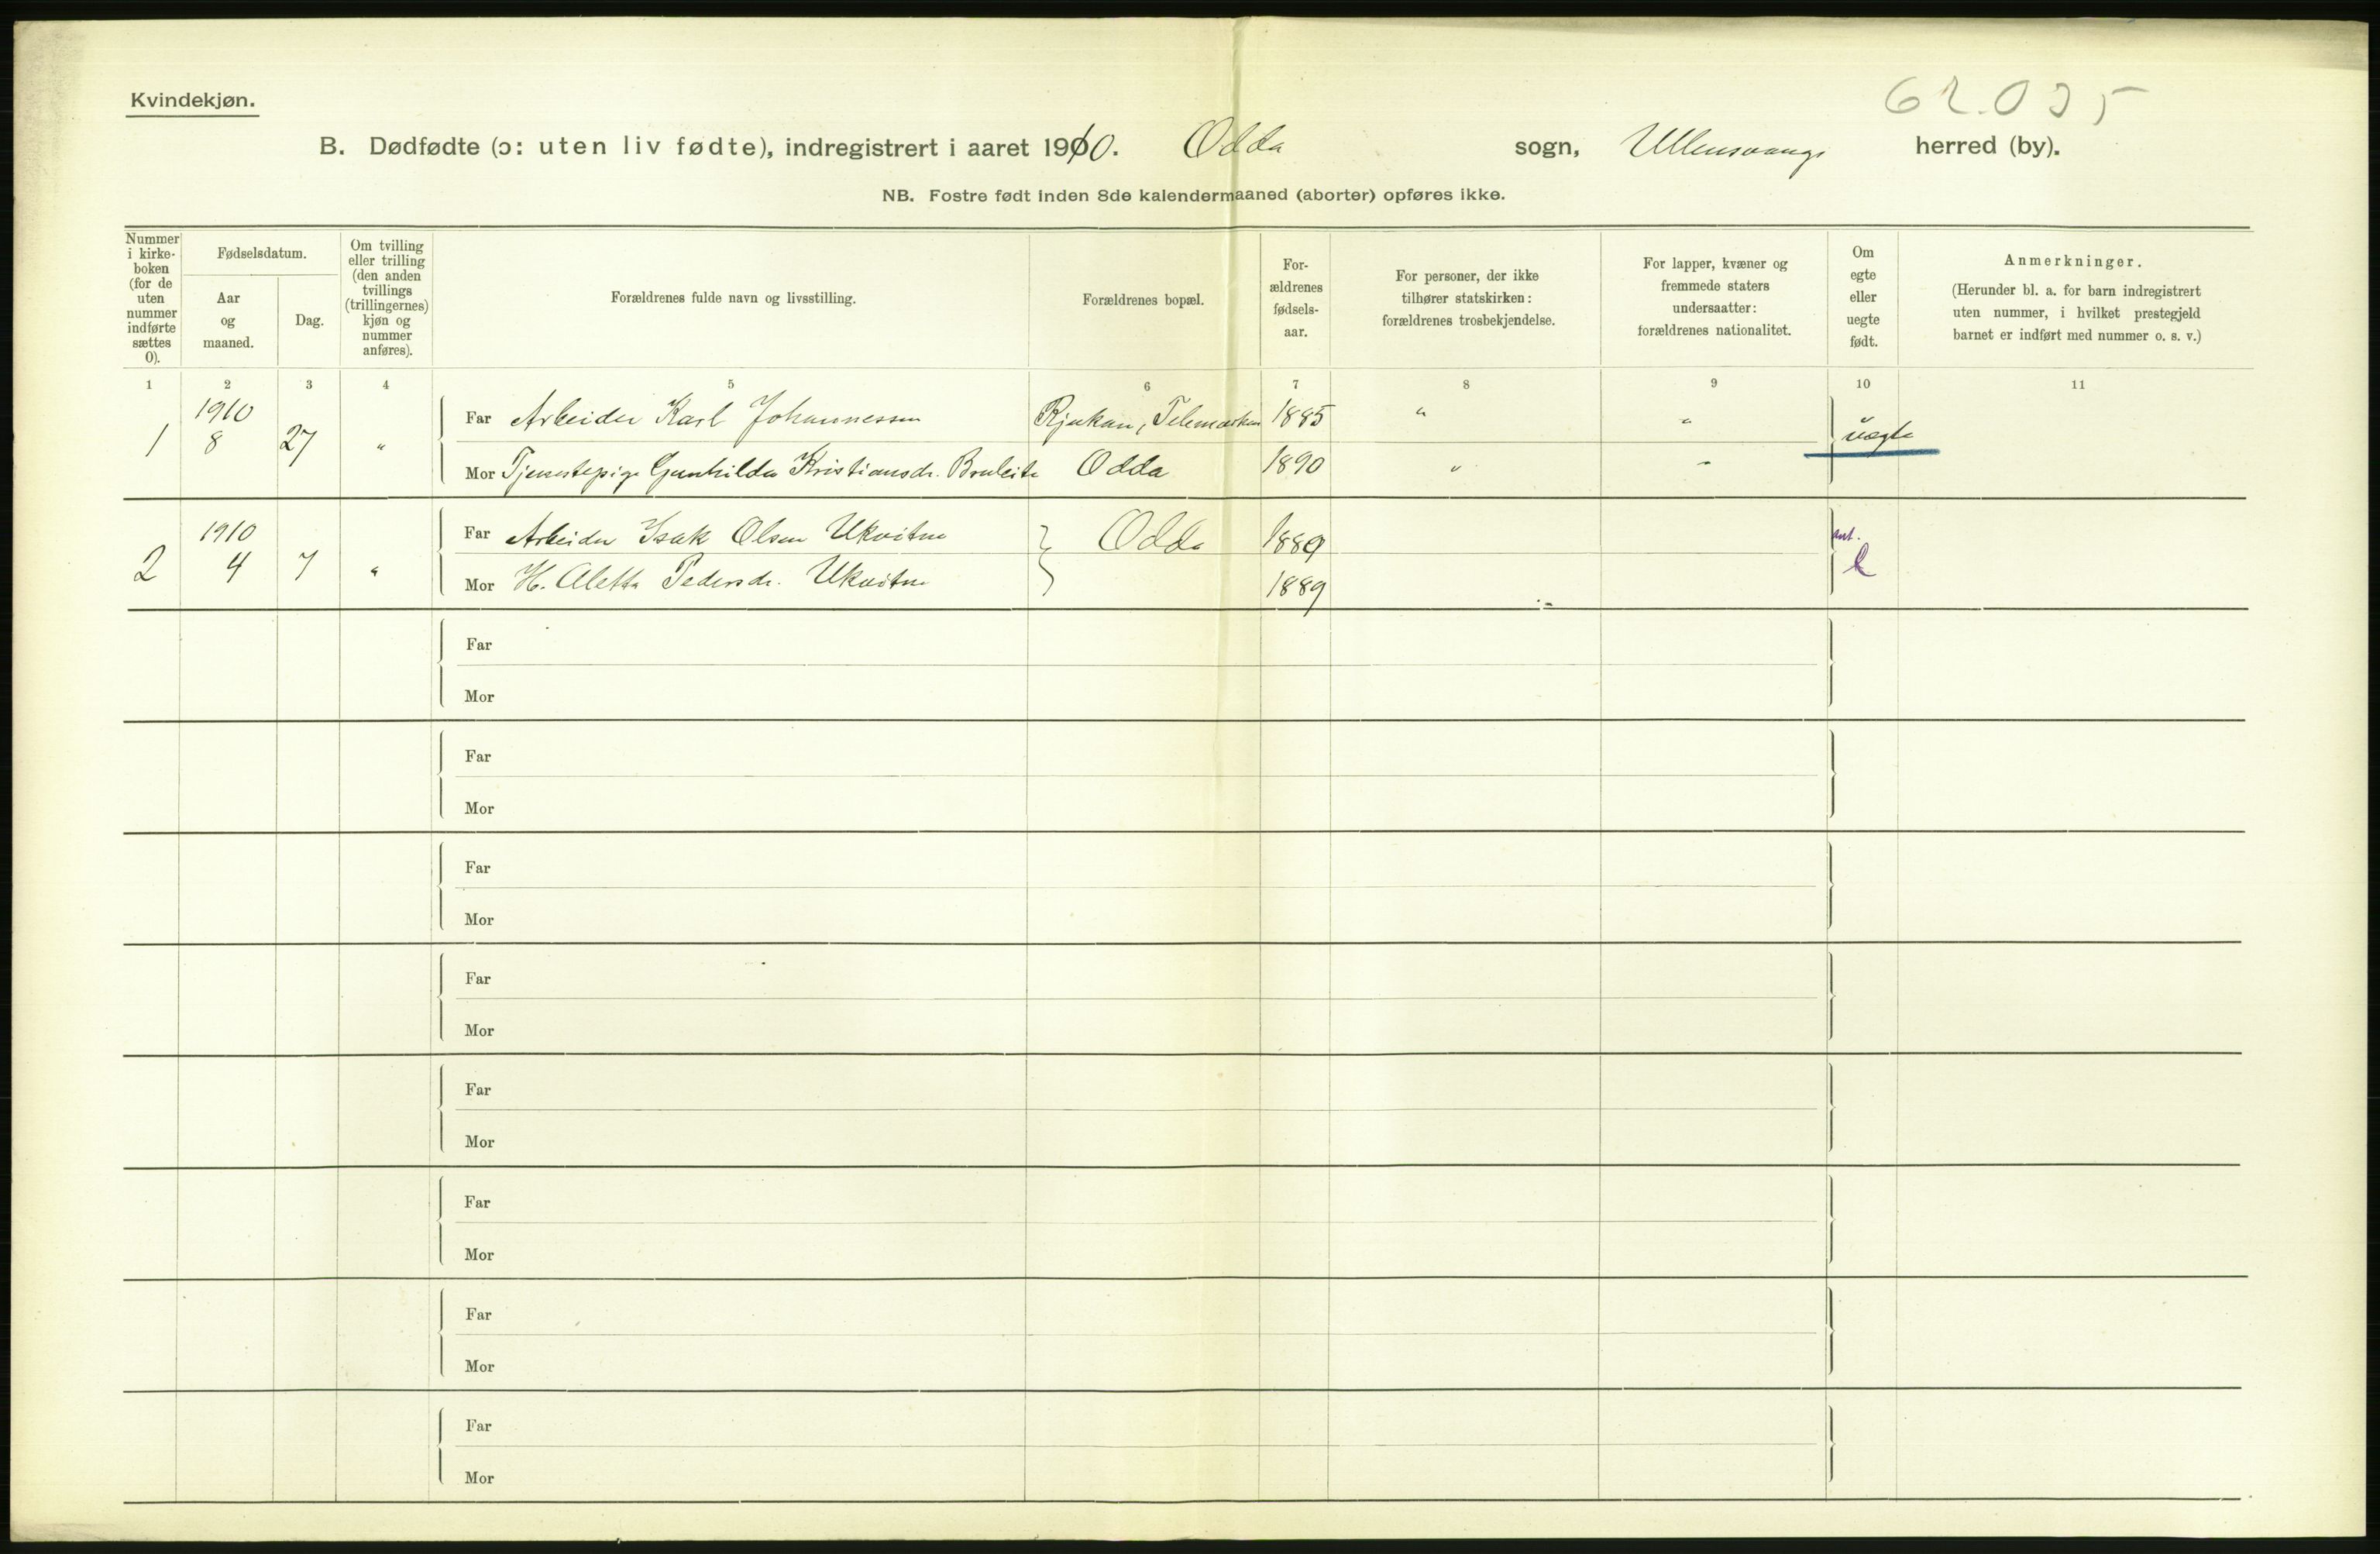 Kvindekjøn.
62.035
B. Dødfødte (ɔ: uten liv fødte), indregistrert i aaret 1910. Odda sogn, Ullensvangs herred (by).
NB. Fostre født inden 8de kalendermaaned (aborter) opføres ikke.
Nummer
i kirke-
boken
(for de
uten
nummer
indførte
sættes
0).
Fødselsdatum.
Aar
og
maaned.
Dag.
Om tvilling
eller trilling
(den anden
tvillings
(trillingernes)
kjøn og
nummer
anføres).
Forældrenes fulde navn og livsstilling.
Forældrenes bopæl.
For-
ældrenes
fødsels-
aar.
For personer, der ikke
tilhører statskirken:
forældrenes trosbekjendelse.
For lapper, kvæner og
fremmede staters
undersaatter:
forældrenes nationalitet.
Om
egte
eller
uegte
født.
Anmerkninger.
(Herunder bl. a. for barn indregistrert
uten nummer, i hvilket prestegjeld
barnet er indført med nummer o. s. v.)
1 2 3 4 5 6 7 8 9 10 11
1910
Far Arbeider Karl Johannessen Rjukan, Telemarken 1885 " "
1 8 27 " uegte
Mor Tjenestepige Gunhilda Kristiansdr. Braleite Odda 1890 " "
1910
Far Arbeider Isak Olsen Ukvitne Odda 1889 ant.
2 4 7 " e
Mor H. Aletta Pedersdr. Ukvitne 1889
Far
Mor
Far
Mor
Far
Mor
Far
Mor
Far
Mor
Far
Mor
Far
Mor
Far
Mor